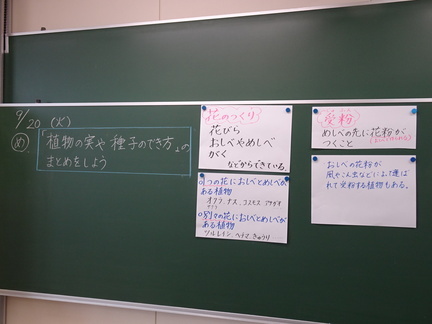 9/20 (火)
め
『植物の実や種子のでき方』の
まとめをしよう
花のつくり
花びら
おしべやめしべ
がく
などからできている。
○1つの花におしべとめしべが
ある植物
オクラ、ナス、コスモス、アサガオ
○別々の花におしべとめしべが
ある植物
ツルレイシ、ヘチマ、きゅうり
受粉
めしべの先に花粉が
つくこと
おしべの花粉が
風やこん虫などによって運ば
れて受粉する植物もある。